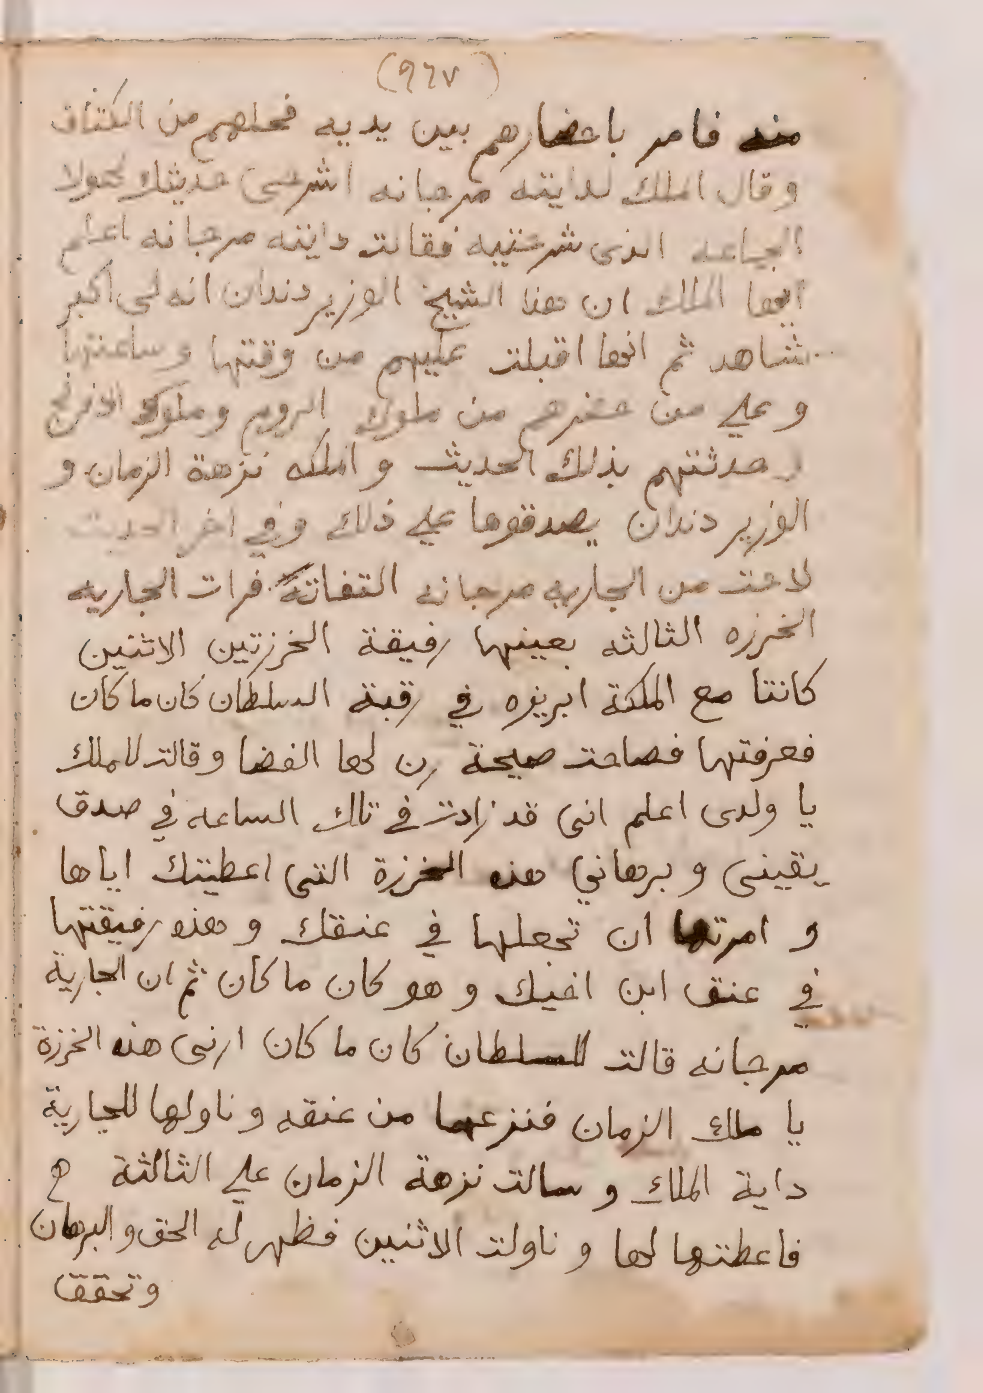 (٩٦٧)
منه فامر باحضارهم بين يديه فحلهم من الكتاف
وقال الملك لدايته مرجانه اشرحى حديثك لهولا
الجماعه الذى شرحتيه فقالت دايته مرجانه اعلم
ايها الملك ان هذا الشيخ الوزير دندان انه لى اكبر
شاهد ثم انها اقبلت عليهم من وقتها وساعتها
و على من حضرهم من ملوك الروم وملوك الافرنج
وحدثتهم بذلك الحديث و الملكه نزهة الزمان و
الوزير دندان يصدقوها على ذلك وفي اخر الحديث
لاحت من الجاريه مرجانه التفاتة فرات الجاريه
الخرزه الثالثه بعينها رفيقة الخرزتين الاثنين
كانتا مع الملكة ابريزه في رقبة السلطان كان ما كان
فعرفتها فصاحت صيحة رن لها الفضا وقالت للملك
يا ولدى اعلم انى قد زادت في تلك الساعه في صدق
يقينى و برهاني هذه الخرزة التى اعطيتك اياها
و امرتها ان تجعلها في عنقك و هذه رفيقتها
في عنق ابن اخيك و هو كان ما كان ثم ان الجارية
مرجانه قالت للسلطان كان ما كان ارنى هذه الخرزة
يا ملك الزمان فنزعها من عنقه و ناولها للجارية
داية الملك و سالت نزهة الزمان على الثالثة
فاعطتها لها و ناولت الاثنين فظهر له الحق والبرهان
وتحقق